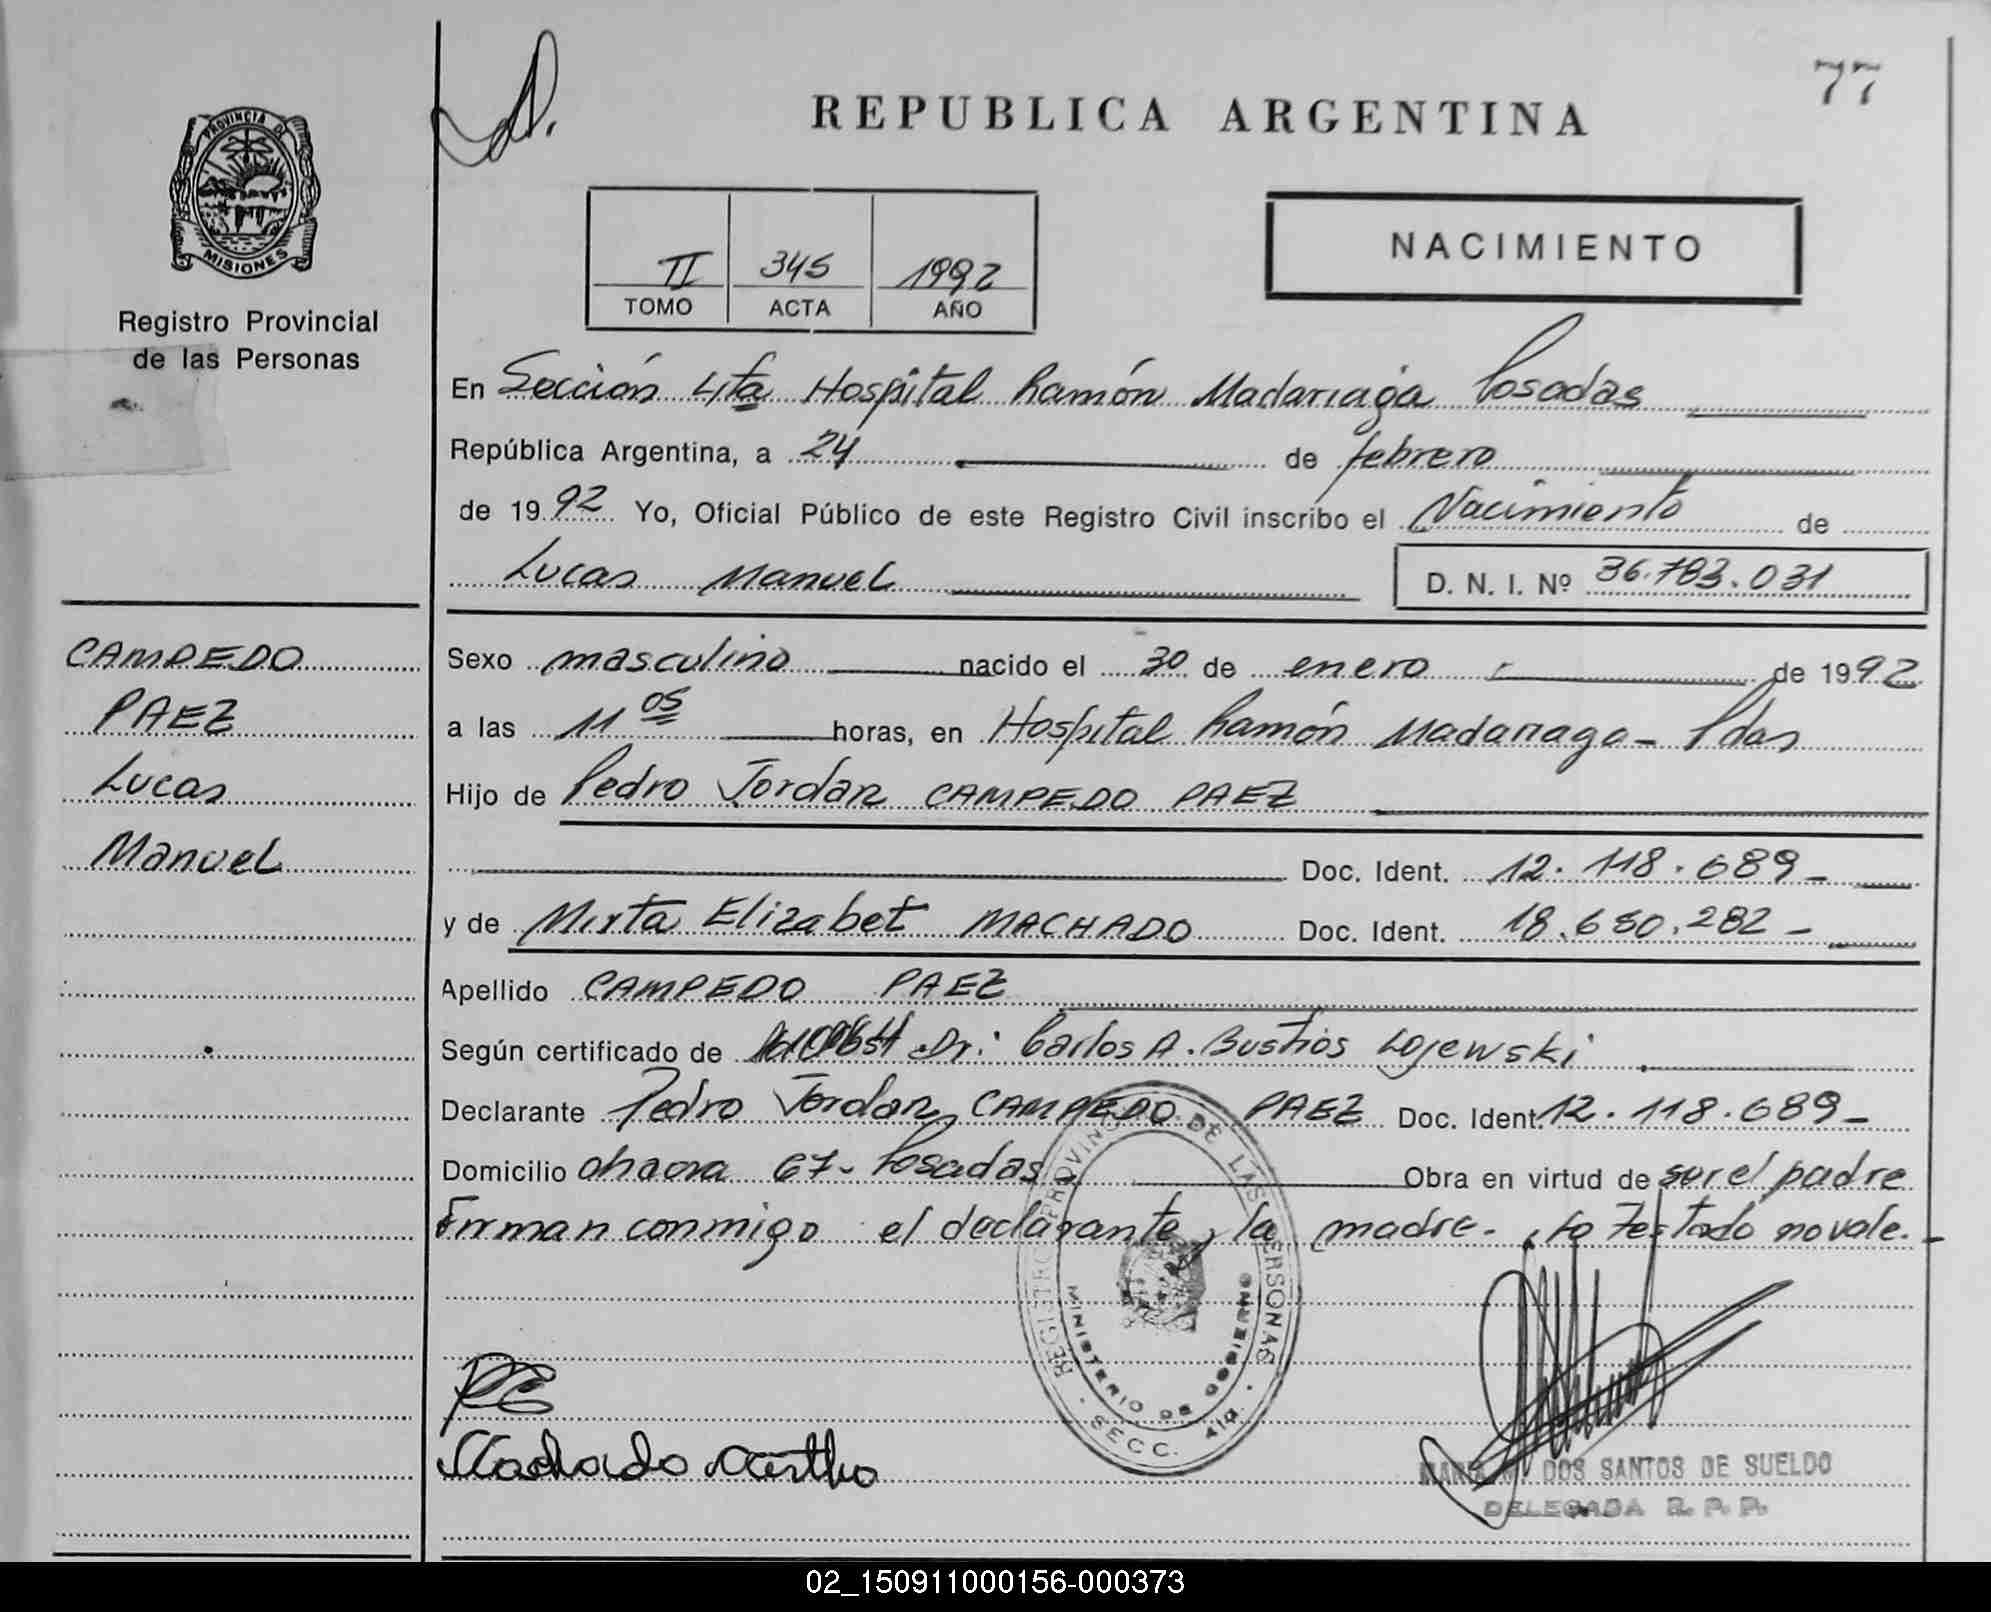 77
REPUBLICA ARGENTINA
PROVINCIA DE
MISIONES
Registro Provincial
de las Personas
II 345 1992
TOMO ACTA AÑO
NACIMIENTO
En Sección 4ta Hospital Ramón Madariaga Posadas
República Argentina, a 24 de febrero
de 1992 Yo, Oficial Público de este Registro Civil inscribo el Nacimiento de
Lucas Manuel D. N. I. Nº 36.783.031
CAMPEDO
PAEZ
Lucas
Manuel
Sexo masculino nacido el 30 de enero de 1992
a las 11 05 horas, en Hospital Ramón Madariaga - Pdas
Hijo de Pedro Jordan CAMPEDO PAEZ
Doc. Ident. 12.118.689-
y de Mirta Elizabet MACHADO Doc. Ident. 18.680.282-
Apellido CAMPEDO PAEZ
Según certificado de Dr: Carlos A. Bustos Lojewski
Declarante Pedro Jordan CAMPEDO PAEZ Doc. Ident. 12.118.689-
Domicilio chacra 67- Posadas Obra en virtud de ser el padre
Firman conmigo el declarante y la madre. lo Testado no vale.-
REGISTRO PROVINCIAL DE LAS PERSONAS
MINISTERIO DE GOBIERNO
SECC. 4ta.
Machado
MARIA M. DOS SANTOS DE SUELDO
DELEGADA R. P. P.
02_150911000156-000373